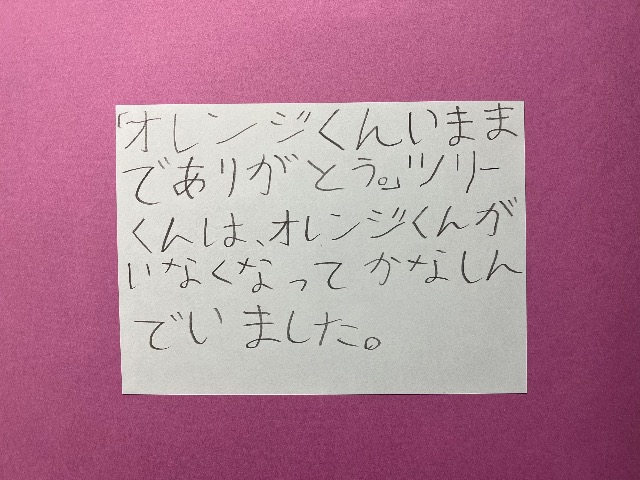 「オレンジくんいまま
でありがとう。」ツリー
くんは、オレンジくんが
いなくなってかなしん
でいました。